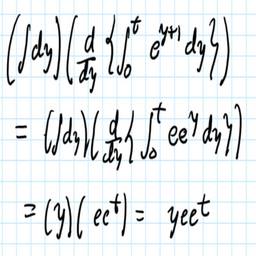 (∫dy)(d/dy {∫₀ᵗ e^{y+1} dy})
= (∫dy)(d/dy {∫₀ᵗ ee^y dy})
= (y)(ee^t) = yee^t